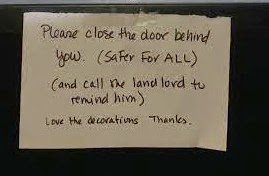 Please close the door behind
you. (Safer For ALL)
(and call the landlord to
remind him)
Love the decorations Thanks.